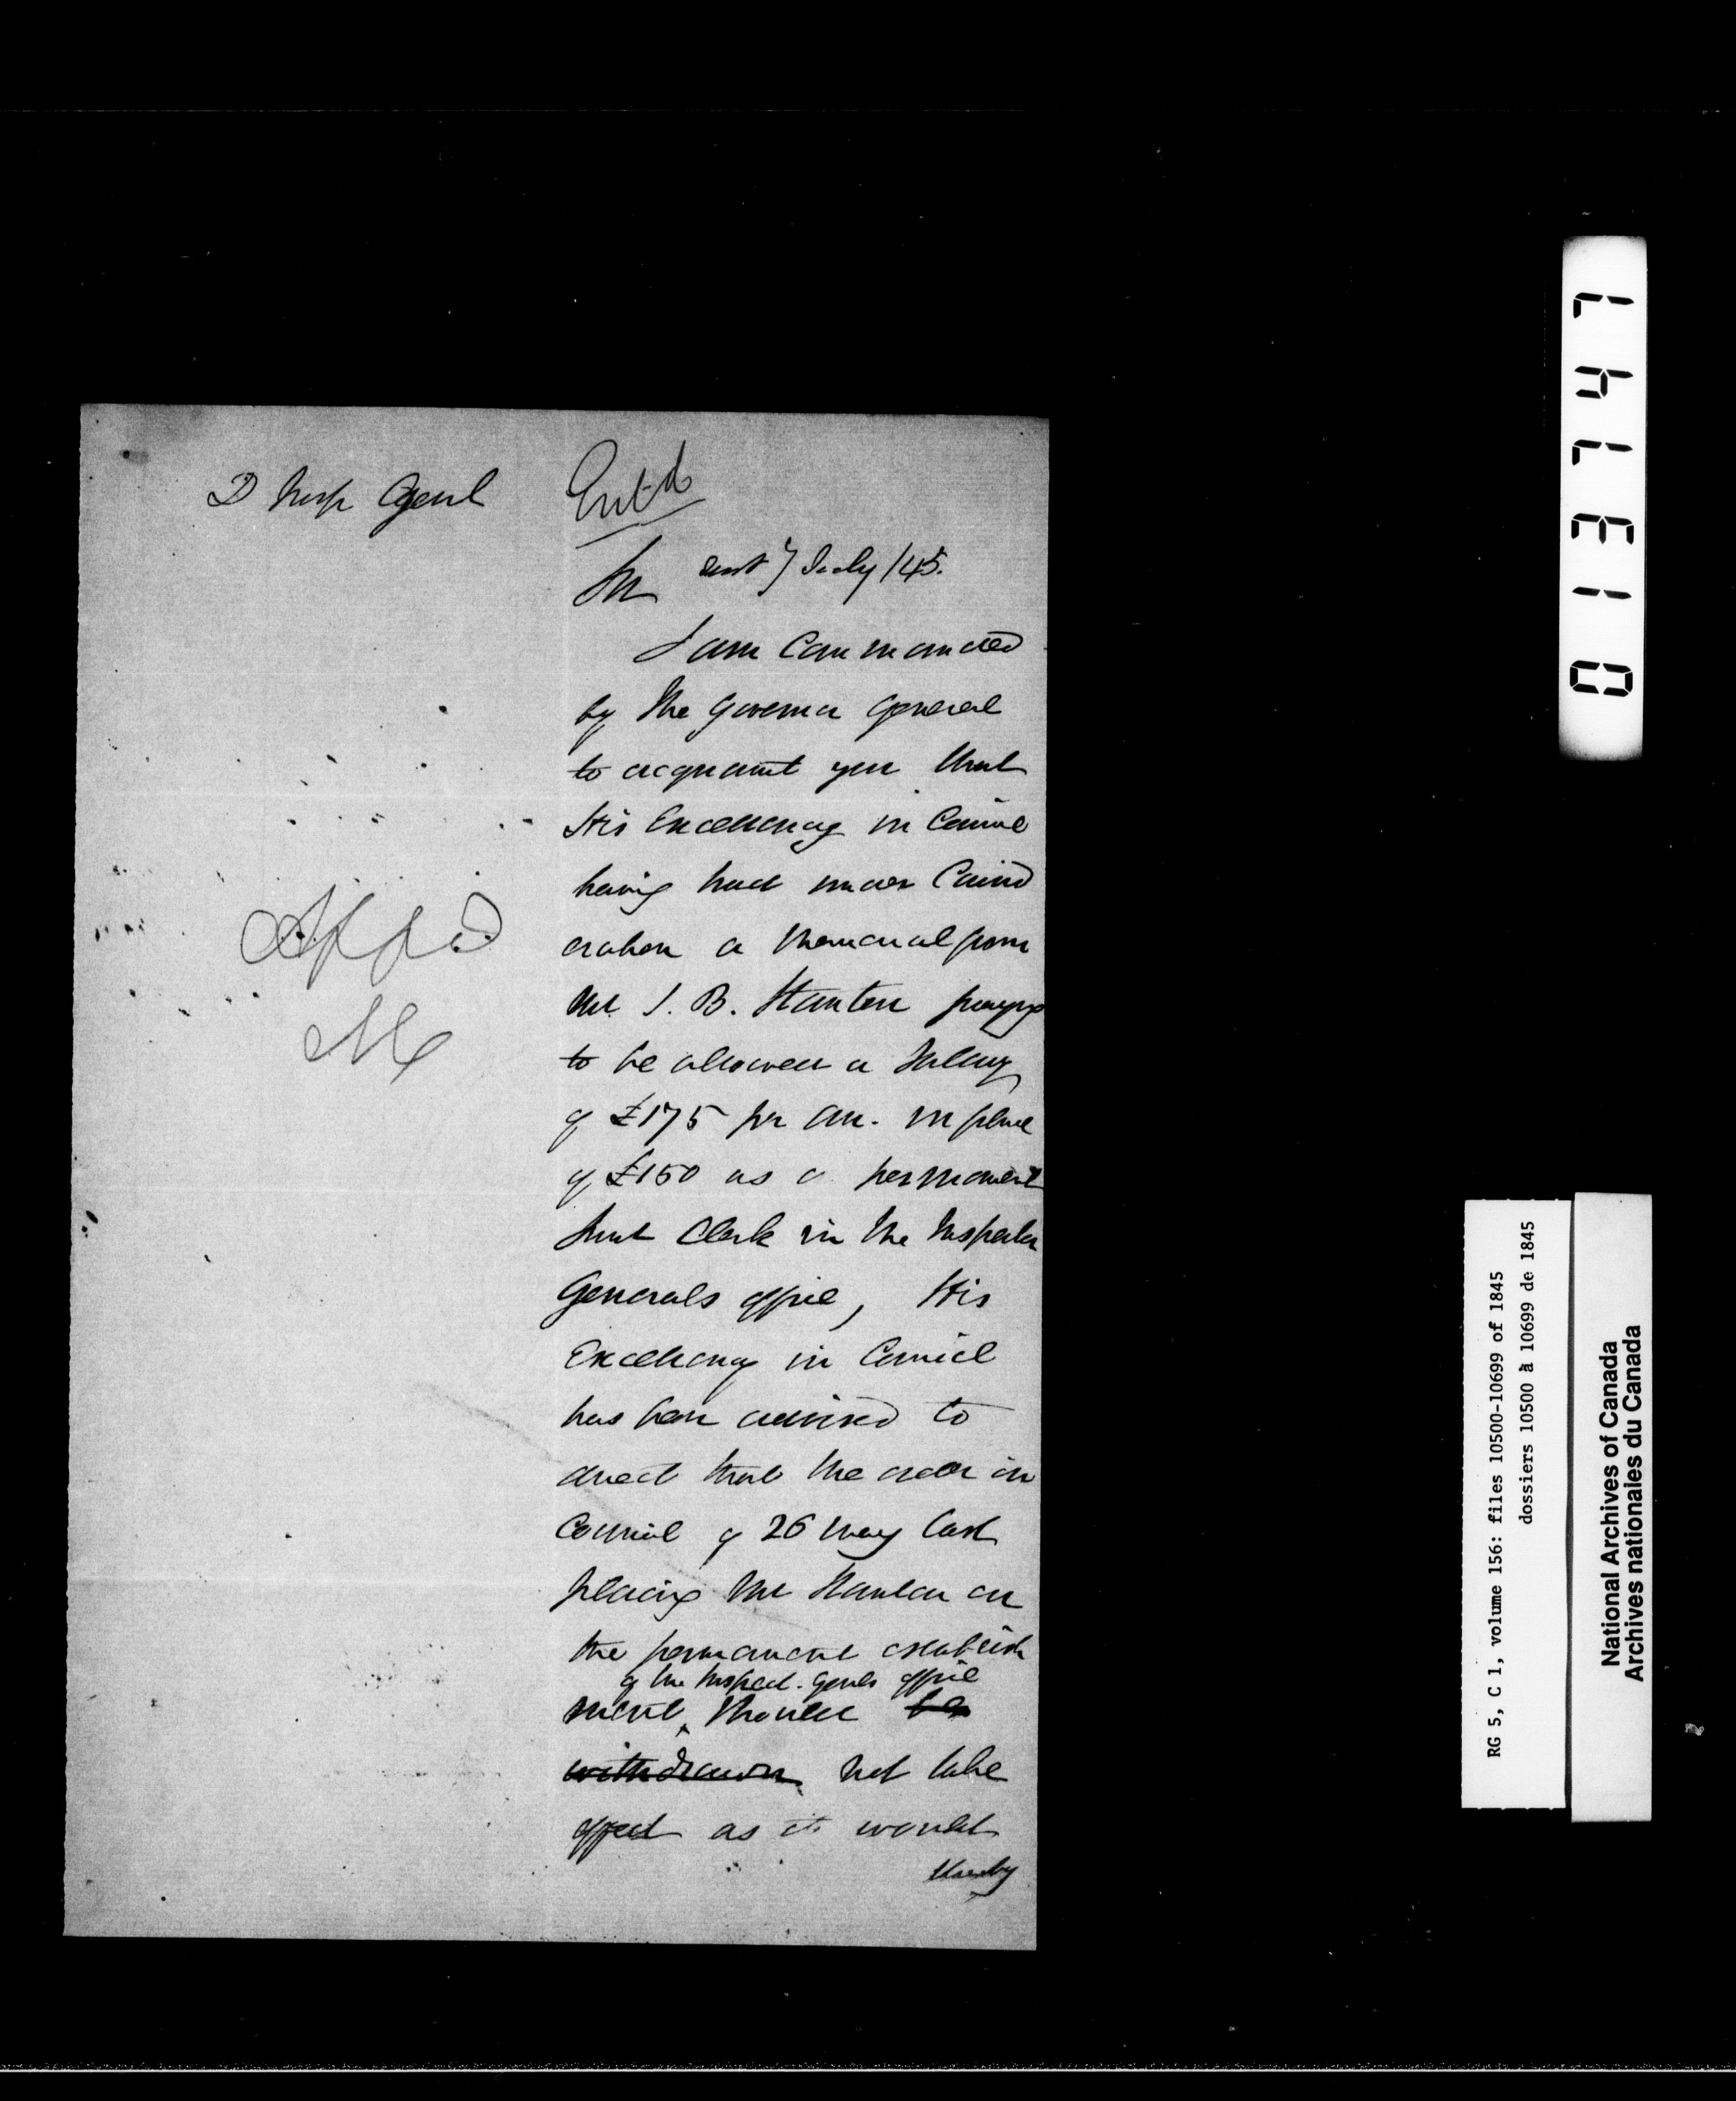 D Insp Genl
Ent'd
Sir
sent 7 July /45.
I am Commanded
by the Governor General
to acquaint you that
His Excellency in Council
having had under Consid
eration a Memorial from
Mr J. B. Stanton praying
to be allowed a Salary
of £175 per an. in place
of £150 as a permanent
Clerk in the Inspector
Generals office, His
Excellency in Council
has been advised to
direct that the order in
Council of 26 May last
placing Mr Stanton on
the permanent establish
of the Inspect. Genls office
ment should be
withdrawn not take
effect as it would
thereby
App'd
M
0131747
RG 5, C 1, volume 156: files 10500-10699 of 1845
dossiers 10500 à 10699 de 1845
National Archives of Canada
Archives nationales du Canada